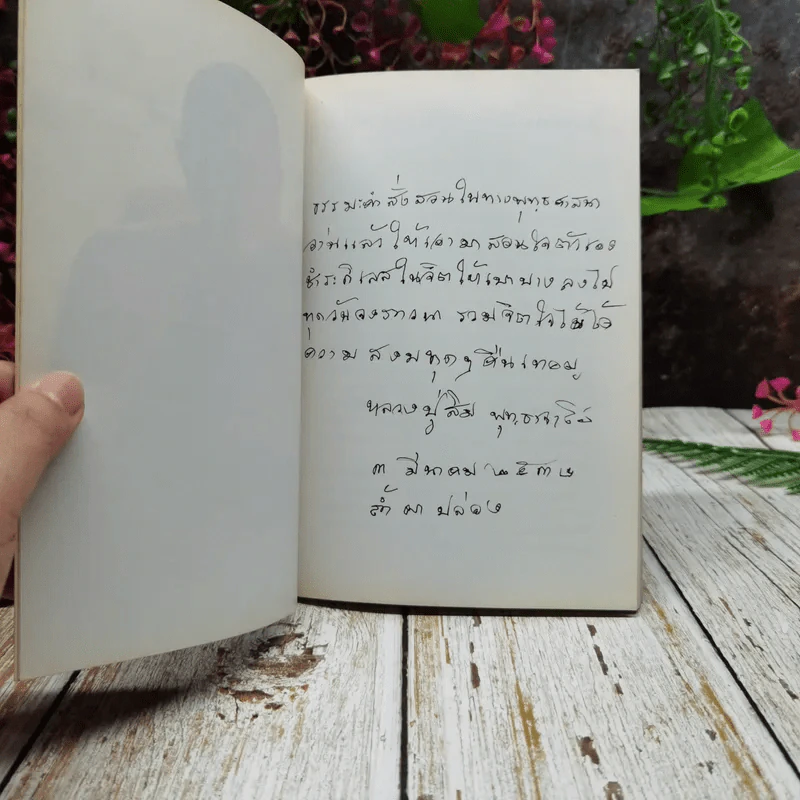 ธรรมะคำสั่งสอนในทางพุทธศาสนา
อ่านแล้วให้เอามาสอนใจตัวเอง
ชำระกิเลสในจิตให้เบาบางลงไป
ทุกวันจงภาวนา รวมจิตใจให้ได้
ความสงบทุกๆคืนเทอญ
หลวงปู่สิม พุทธาจาโร
๓ มีนาคม ๒๕๓๒
ถ้ำผาปล่อง